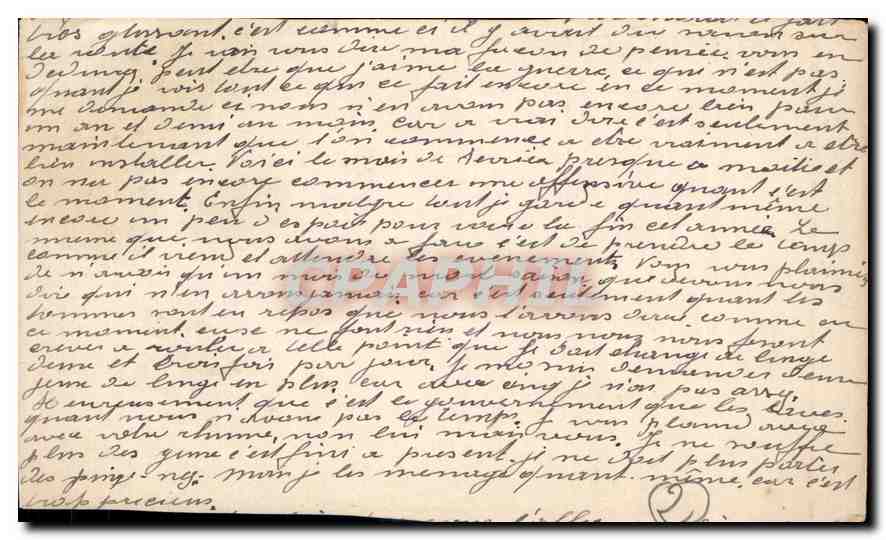 très glissant, c'est comme ci il y avait du savon sur
la route. Je vais vous dire ma façon de pensée. vous en
peut etre que j'aime la guerre, ce qui n'est pas
quant je vois tout ce qui ce fait encore en ce moment, je
me demande ci nous n'en avons pas encore bien pour
un an et demi au moin, car a vrai dire c'est seulement
maintenant que l'on commence a etre vraiment a etre
bien installer. Voici le mois de Fevrier presque a moitié et
on na pas encore commencer une offensive quant c'est
le moment. Enfin malgre tout je garde quant même
encore un peu d'espoir pour voir la fin cet année. Le
mieux que nous avons a faire c'est de prendre le temps
comme il vient et attendre les evenements. Vous vous plaimiez
de n'avoir qu'un de que devons nous
dire qui n'en avons jamais, car c'est seulement quant les
hommes sont en repos que nous l'avons dure comme en
ce moment, euse ne font rien et nous nous feront
crever a rouler a telle point que je doit changé de linge
deux et trois fois par jour. Je me suis demander deux
jeux de linge en plus, car avec cinq je n'ai pas assez.
Heureusement que c'est le gouvernement que les
quant nous n'avons pas le temps. Je vous plains avec
avec votre rhume, non lui mais vous. Je ne souffre
plus des c'est fini a present, je ne doit plus parler
des mais je les menage quant même, car c'est
trop precieux.
2
CPAPHIL